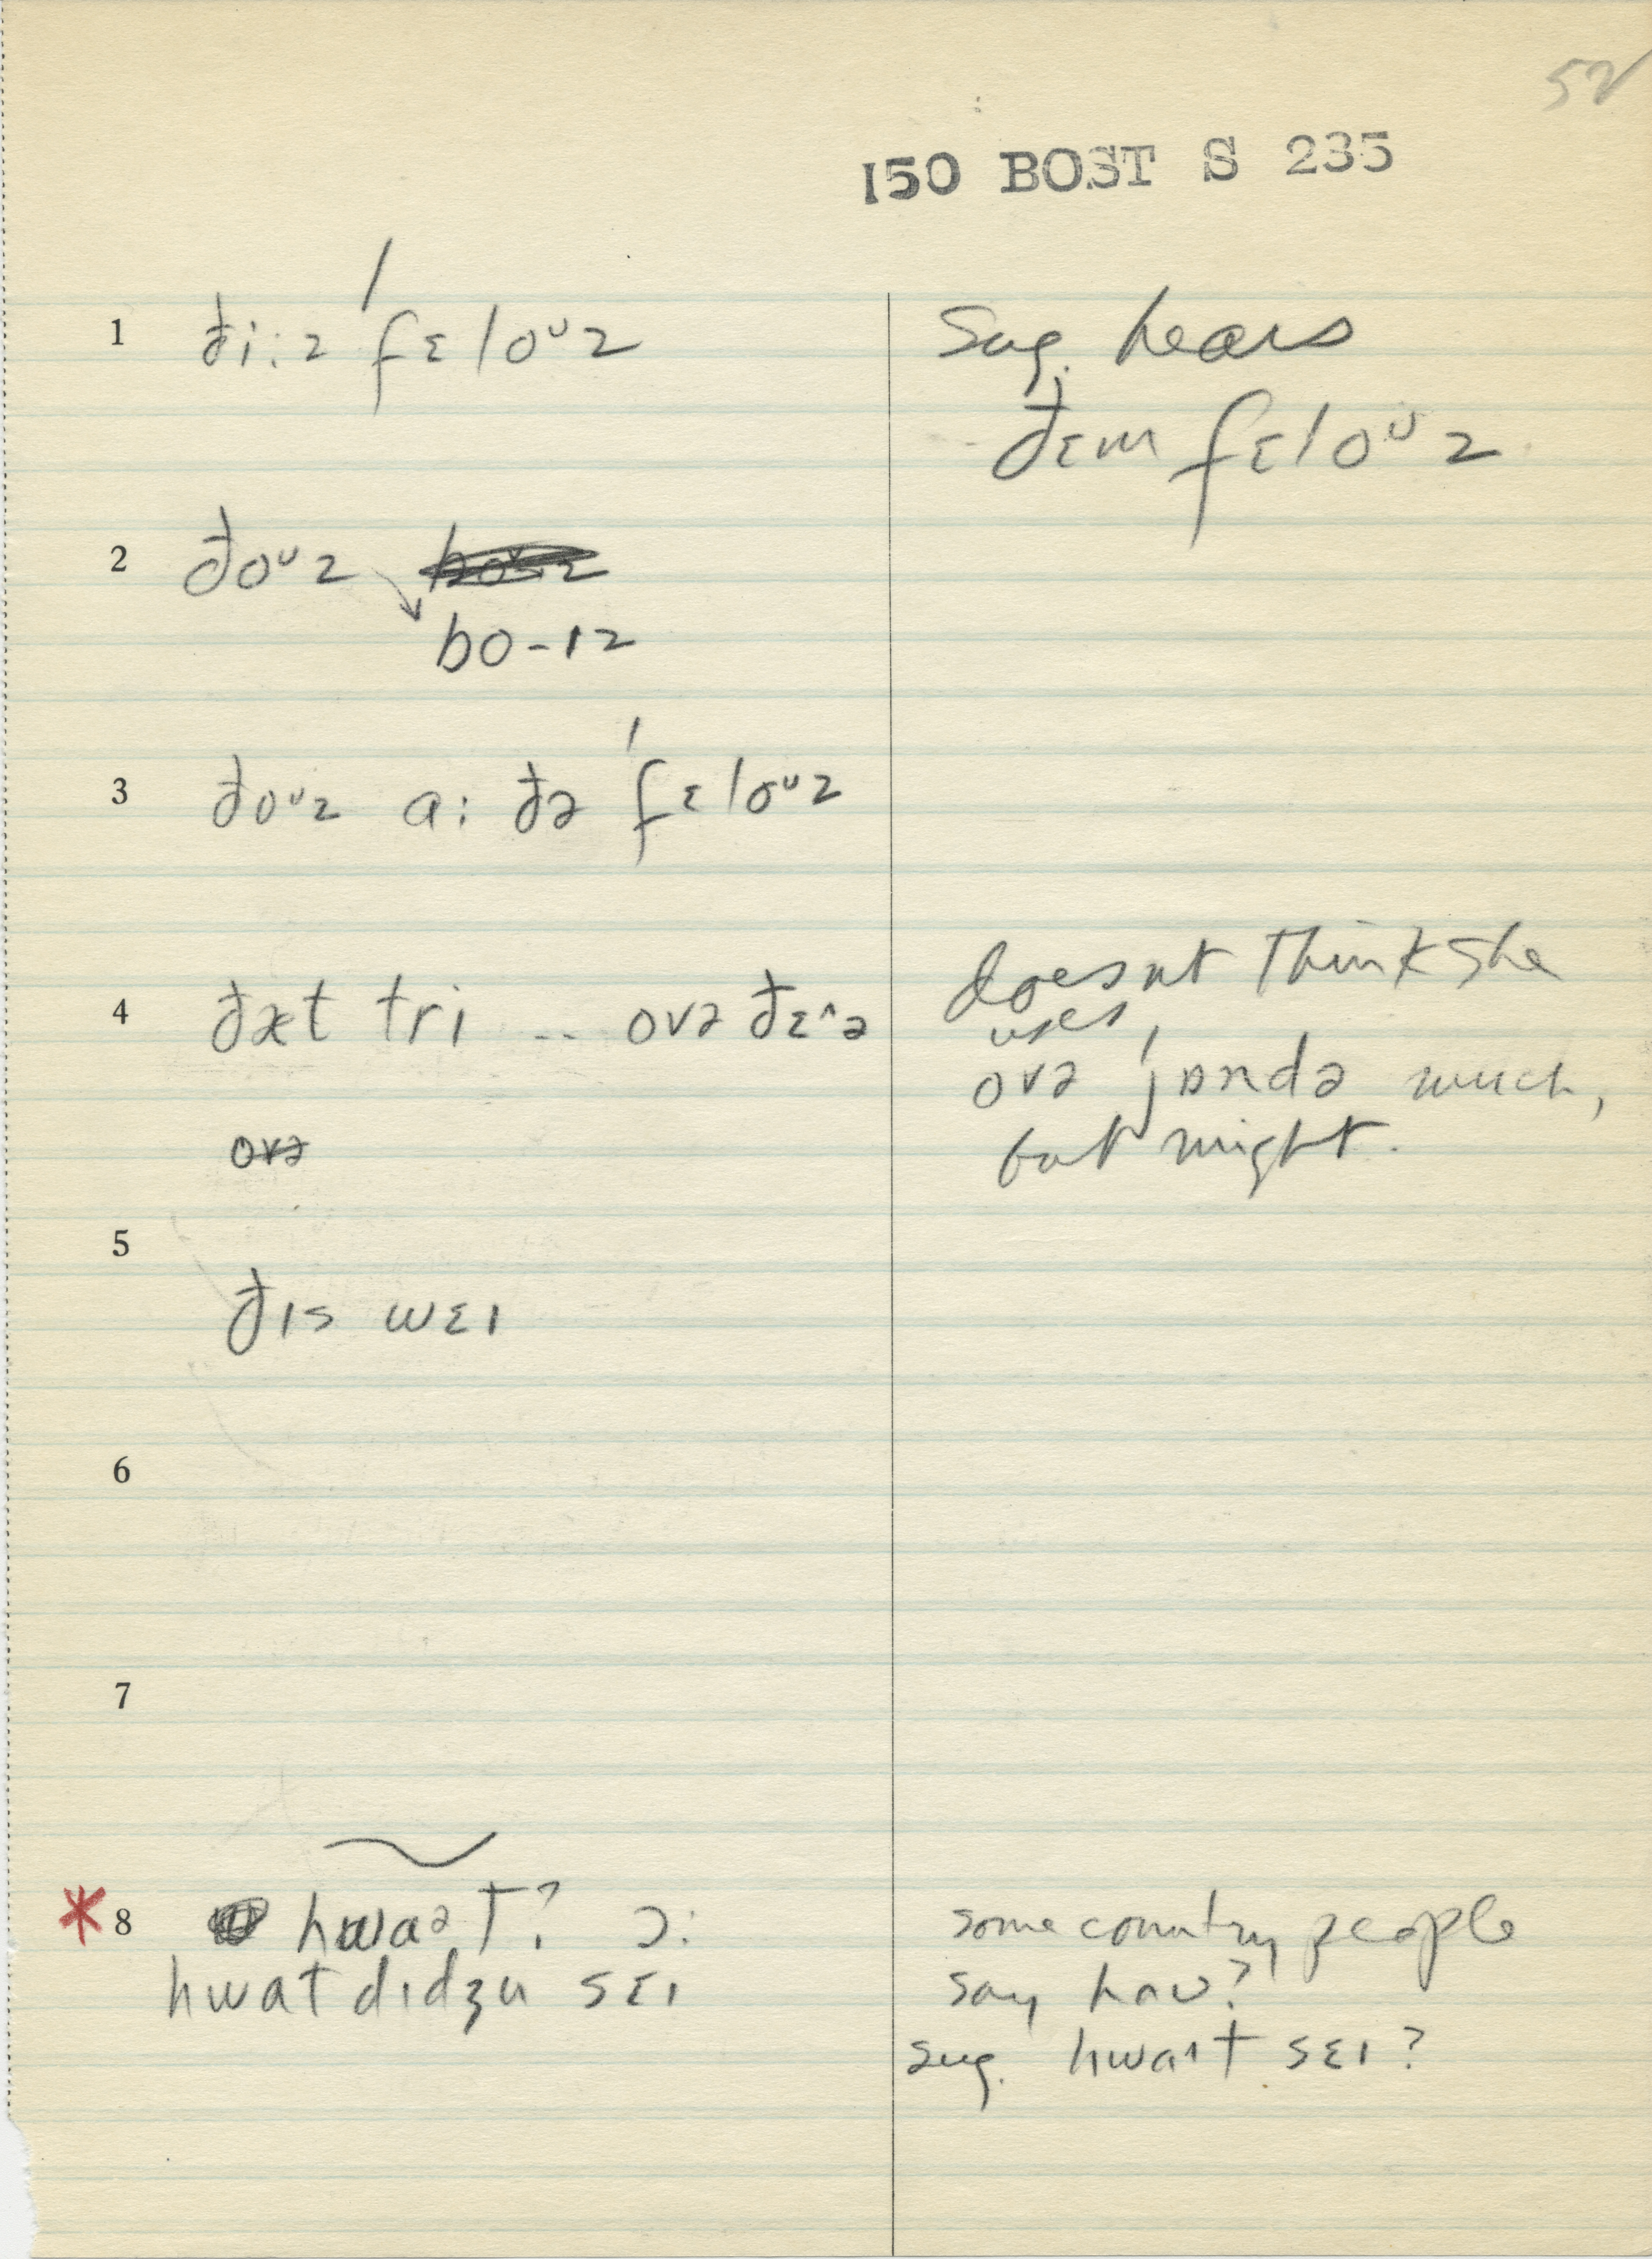 52
150 BOST S 235
1 ði:z ˈfɛloᵘz
sug. hears
ðɛm fɛloᵘz
2 ðoᵘz
bo-ɪz
3 ðoᵘz a: ðə ˈfɛloᵘz
4 ðæt tri .. ovə ðɛ^ə
doesnt think she
uses
ovə ˈjɒndə much,
but might.
ovə
5
ðɪs wɛɪ
6
7
* 8 hwaᵊt? ɔ:
hwat dɪdʒu sɛɪ
some country people
say how?
sug. hwaɪt sɛɪ?